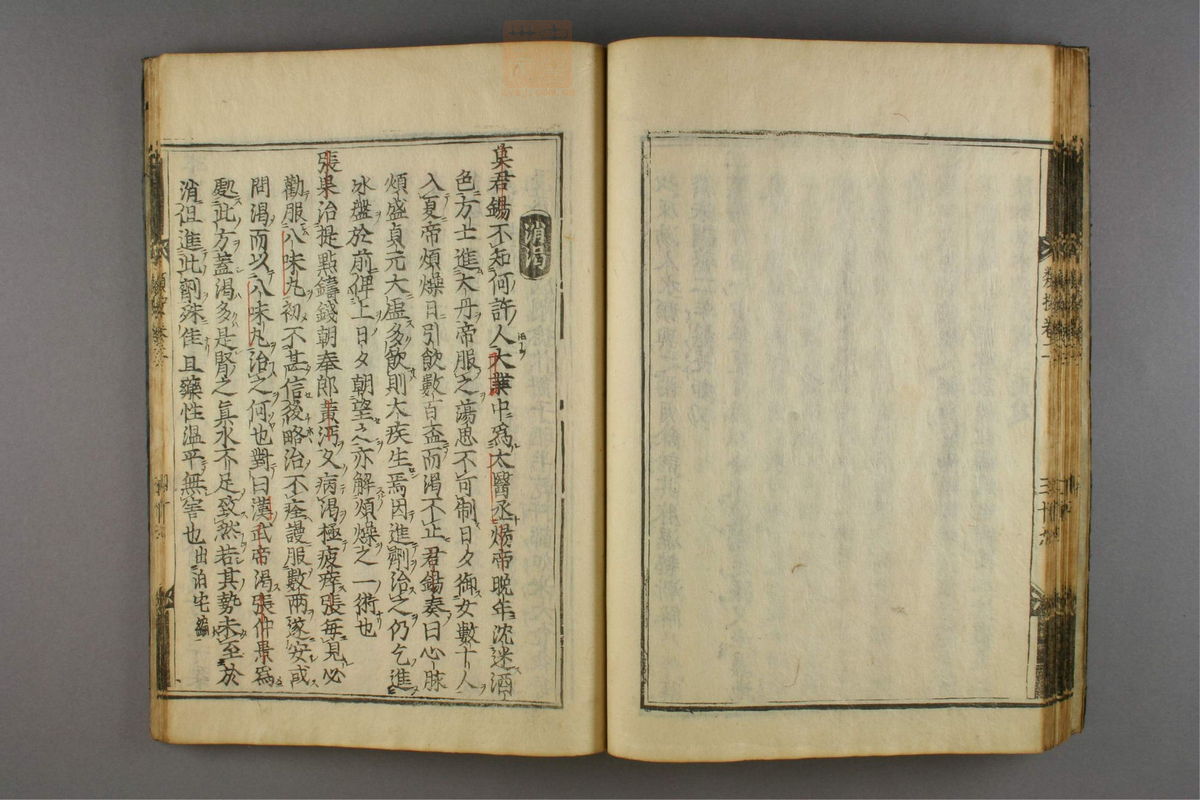 消渇
莫君錫不知何許人大業中為太醫丞煬帝晚年沈迷酒
色方士進大丹帝服之蕩思不可制日夕御女數十人
入夏帝煩燥日引飲數百盃而渇不止君錫奏曰心脉
煩盛真元大虚多飲則大疾生焉因進劑治之仍乞進
冰盤於前俾上日夕朝望之亦解煩燥之一術也
張杲治提點鑄錢朝奉郎黄沔久病渇極疲瘁張毎見必
勸服八味丸初不甚信後略治不痊謾服數两遂安或
問渇而以八味丸治之何也對曰漢武帝渇張仲景為
處此方蓋渇多是腎之真水不足致然若其勢未至於
消但進此劑殊佳且藥性温平無害也 出泊宅編